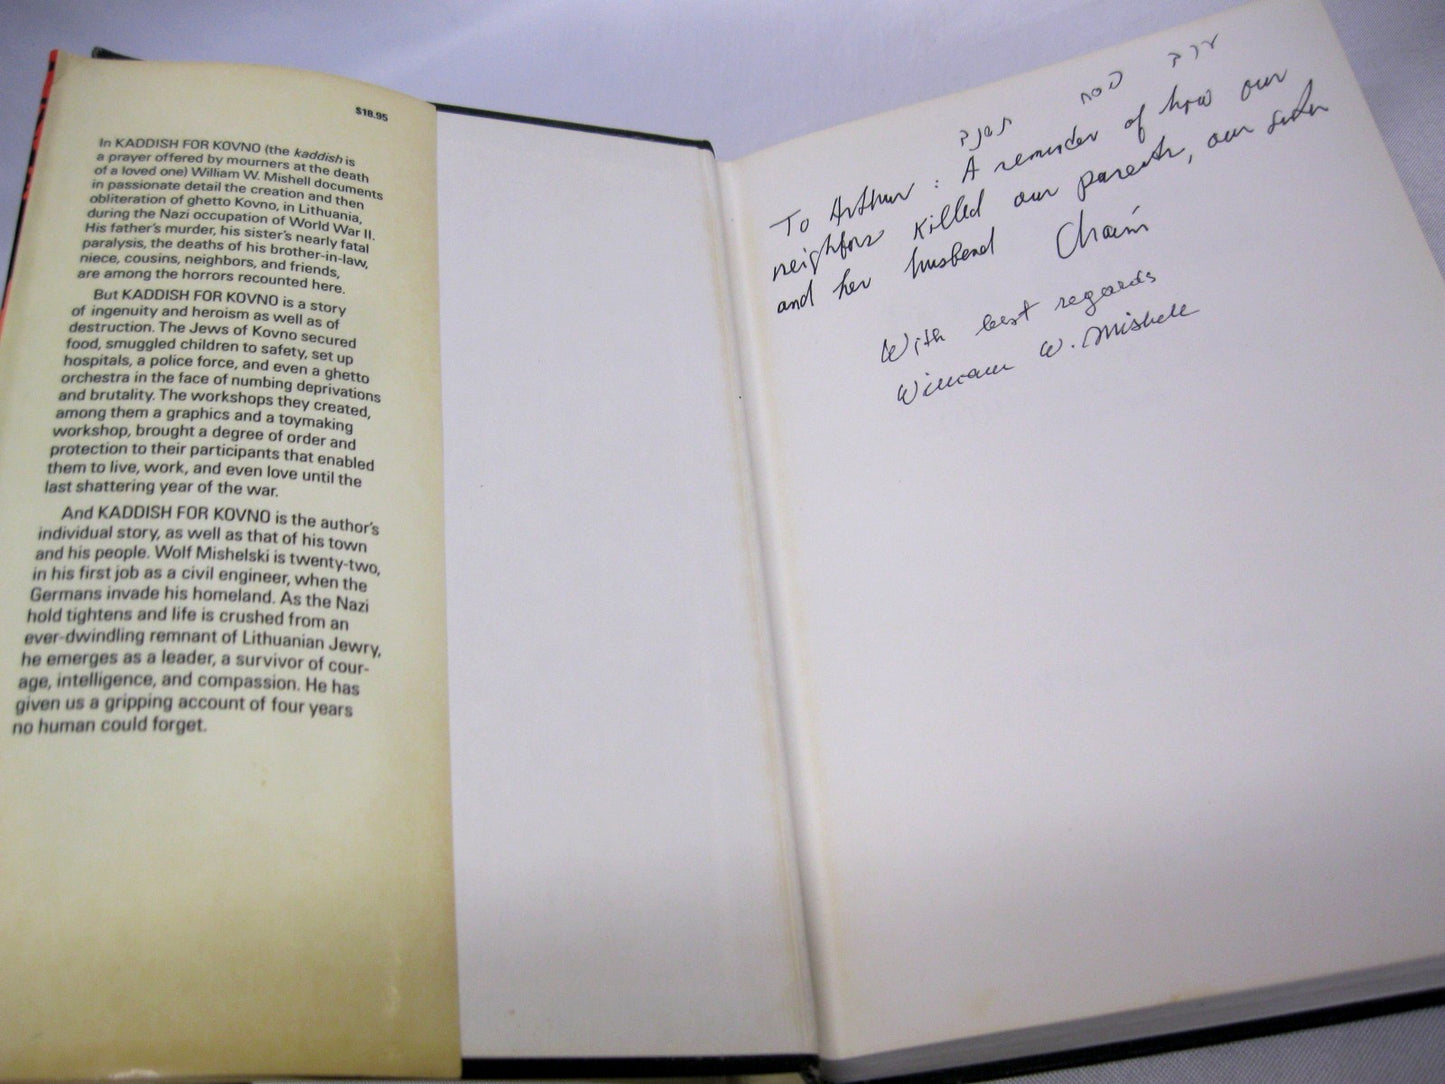 $18.95
In KADDISH FOR KOVNO (the kaddish is
a prayer offered by mourners at the death
of a loved one) William W. Mishell documents
in passionate detail the creation and then
obliteration of ghetto Kovno, in Lithuania,
during the Nazi occupation of World War II.
His father's murder, his sister's nearly fatal
paralysis, the deaths of his brother-in-law,
niece, cousins, neighbors, and friends,
are among the horrors recounted here.
But KADDISH FOR KOVNO is a story
of ingenuity and heroism as well as of
destruction. The Jews of Kovno secured
food, smuggled children to safety, set up
hospitals, a police force, and even a ghetto
orchestra in the face of numbing deprivations
and brutality. The workshops they created,
among them a graphics and a toymaking
workshop, brought a degree of order and
protection to their participants that enabled
them to live, work, and even love until the
last shattering year of the war.
And KADDISH FOR KOVNO is the author's
individual story, as well as that of his town
and his people. Wolf Mishelski is twenty-two,
in his first job as a civil engineer, when the
Germans invade his homeland. As the Nazi
hold tightens and life is crushed from an
ever-dwindling remnant of Lithuanian Jewry,
he emerges as a leader, a survivor of cour-
age, intelligence, and compassion. He has
given us a gripping account of four years
no human could forget.
ערב פסח
To Arthur: A reminder of how our
neighbors killed our parents, our sister
and her husband Chaim
With best regards
William W. Mishell